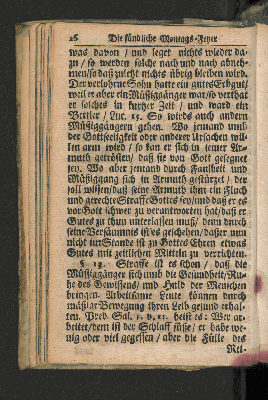 26 Die sündliche Montags-Feyer
was davon / und leget nichts wieder da-
zu / so werden solche nach und nach abneh-
men / so daß zuletzt nichts übrig bleiben wird.
Der verlohrne Sohn hatte ein gutes Erbgut /
weil er aber ein Müßiggänger war / so verthat
er solches in kurtzer Zeit / und ward ein
Bettler / Luc. 15. So wirds auch andern
Müßiggängern gehen. Wo jemand umb
der Gottseligkeit oder anderer Ursachen wil-
len arm wird / so kan er sich in seiner Ar-
muth getrösten / daß sie von Gott gesegnet
sey. Wo aber jemand durch Faulheit und
Müßiggang sich in Armuth gestürtzet / der
soll wissen / daß seine Armuth ihm ein Fluch
und gerechte Straffe Gottes sey / und daß er es
vor Gott schwer zu verantworten hat / daß er
Gutes zu thun unterlassen muß / denn durch
seine Versäumnis ist es geschehen / daß er nun
nicht im Stande ist zu Gottes Ehren etwas
Gutes mit zeitlichen Mitteln zu verrichten.
§. 13. Straffe ist es schon / daß die
Müßiggänger sich umb die Gesundheit / Ru-
he des Gewissens / und Huld der Menschen
bringen. Arbeitsame Leute können durch
mäßige Bewegung ihren Leib gesund erhal-
ten. Pred. Sal. 5. v. 11. heist es: Wer ar-
beitet / dem ist der Schlaff süße / er habe we-
nig oder viel gegessen / aber die Fülle des